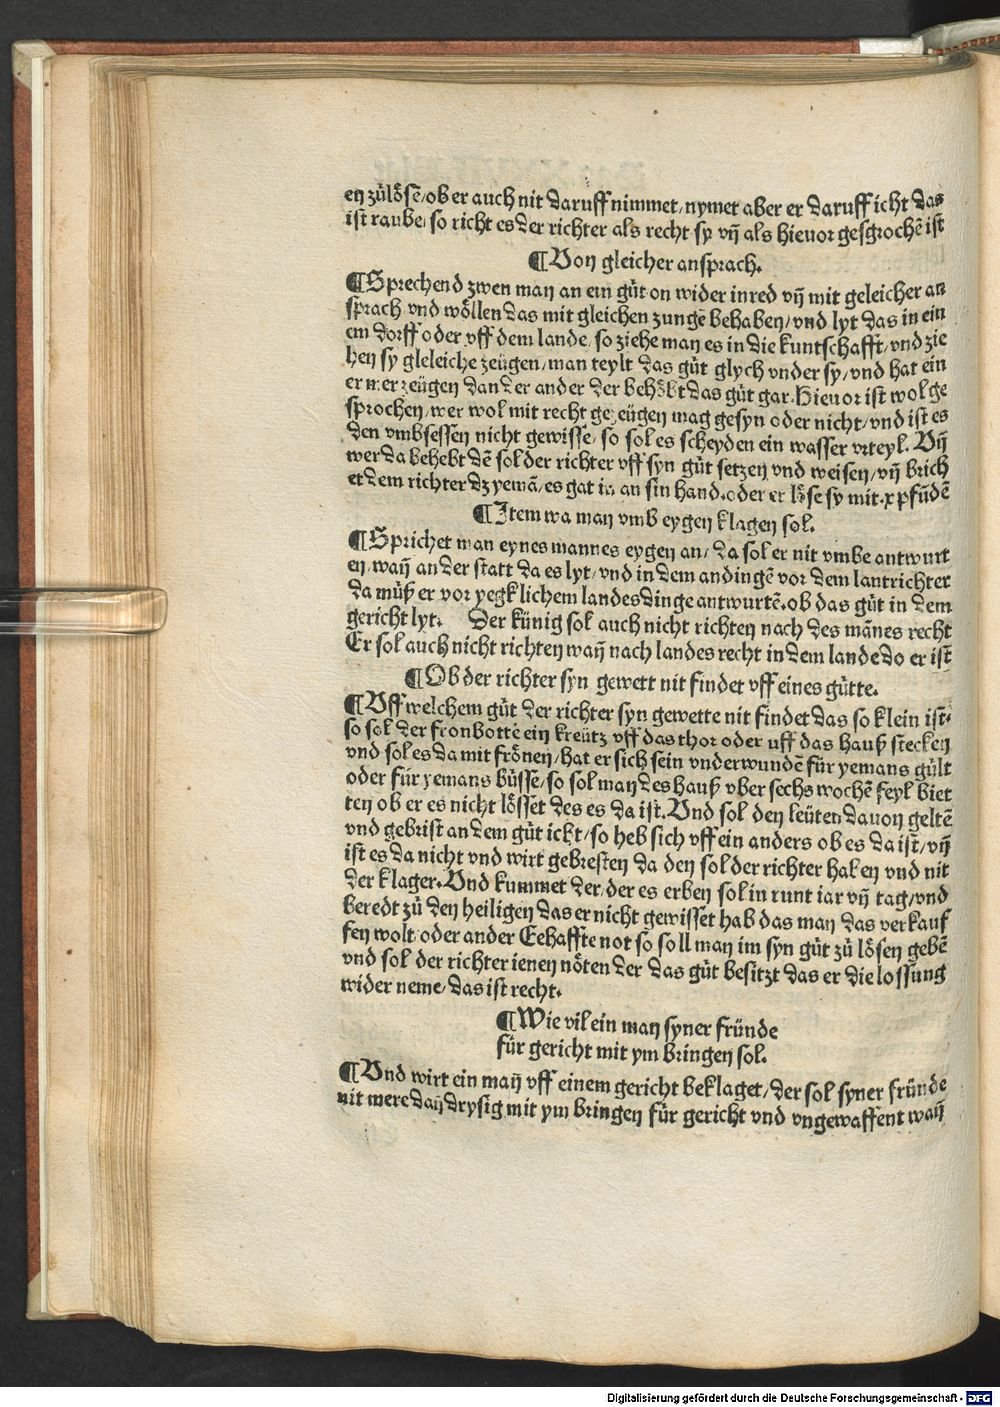 en zůlösē/ob er auch nit daruff nimmet/nymet aber er daruff icht das
ist raube/so richt es der richter als recht sy vn̄ als hieuor gesprochē ist
¶Von gleicher ansprach.
¶Sprechend zwen man an ein gůt on wider inred vn̄ mit geleicher an
sprach vnd wöllen das mit gleichen zungē behaben/vnd lyt das in ein
em dorff oder vff dem lande/so ziehe man es in die kuntschafft/vnd zie
hen sy gleleiche zeügen/man teylt das gůt glych vnder sy/vnd hat ein
er mer zeügen dan der ander der behöbt das gůt gar. Hieuor ist wol ge
sprochen/wer wol mit recht gezeügen mag gesyn oder nicht/vnd ist es
den vmbsessen nicht gewisse/so sol es scheyden ein wasser vrteyl. Vn̄
wer da behebt dē sol der richter vff syn gůt setzen vnd weisen/vn̄ brich
et dem richter dz yemā/es gat in an sin hand.oder er löse sy mit.x pfūdē
¶Item wa man vmb eygen klagen sol.
¶Sprichet man eynes mannes eygen an/da sol er nit vmbe antwurt
en/wan̄ an der statt da es lyt/vnd in dem andingē vor dem lantrichter
da můß er vor yegklichem landesdinge antwurtē.ob das gůt in dem
gericht lyt. Der künig sol auch nicht richten nach des mānes recht
Er sol auch nicht richten wan̄ nach landes recht in dem lande do er ist
¶Ob der richter syn gewett nit findet vff eines gůtte.
¶Vff welchem gůt der richter syn gewette nit findet das so klein ist.
so sol der fronbottē ein kreütz vff das thor oder uff das hauß stecken
vnd sol es da mit frönen/hat er sich sein vnderwundē für yemans gült
oder für yemans bůsse/so sol man des hauß vber sechs wochē feyl biet
ten ob er es nicht lösset des es da ist. Vnd sol den leüten dauon geltē
vnd gebrist an dem gůt icht/so heb sich vff ein anders ob es da ist/vn̄
ist es da nicht vnd wirt gebresten da den sol der richter haben vnd nit
der klager. Vnd kummet der/der es erben sol in runt iar vn̄ tag/vnd
beredt zů den heiligen das er nicht gewisset hab das man das verkauf
fen wolt oder ander Eehaffte not so soll man im syn gůt zů lösen gebē
vnd sol der richter ienen nöten der das gůt besitzt das er die lossung
wider neme/das ist recht.
¶Wie vil ein man syner fründe
für gericht mit ym bringen sol.
¶Vnd wirt ein man̄ vff einem gericht beklaget/der sol syner fründe
nit mere dan̄ drysig mit ym bringen für gericht vnd vngewaffent wan̄
Digitalisierung gefördert durch die Deutsche Forschungsgemeinschaft - DFG